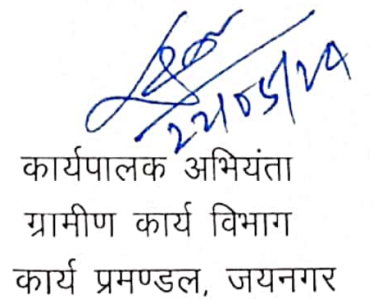 22/05/24
कार्यपालक अभियंता
ग्रामीण कार्य विभाग
कार्य प्रमण्डल, जयनगर